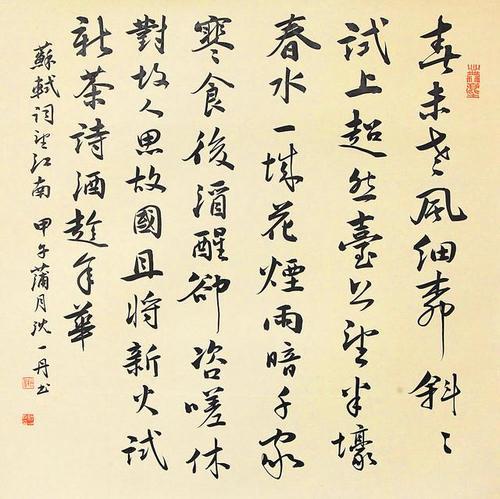 春未老風細柳斜〻
試上超然臺上望半壕
春水一城花煙雨暗千家
寒食後酒醒卻咨嗟休
對故人思故國且將新火試
新茶詩酒趁年華
蘇軾詞望江南 甲午蒲月沈一丹书